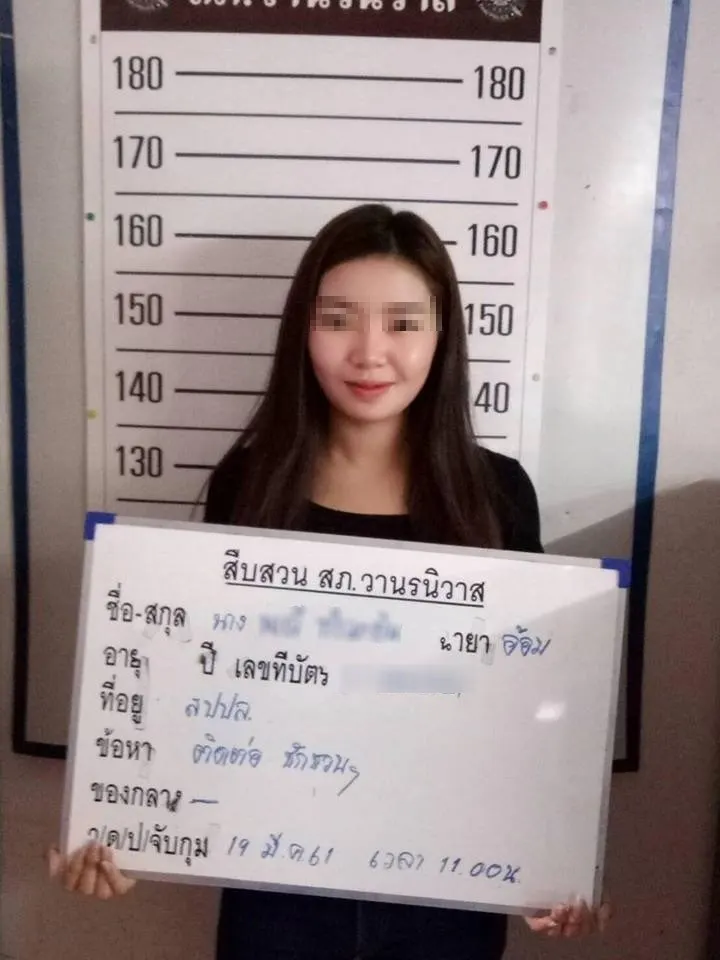 180 180
170 170
160 160
150 150
140 40
130
สืบสวน สภ.วานรนิวาส
ชื่อ-สกุล นาง ฉายา อ้อม
อายุ ปี เลขที่บัตร
ที่อยู่ สปปล.
ข้อหา ติดต่อ ชักชวนฯ
ของกลาง —
ว/ด/ป/จับกุม 19 มี.ค.61 เวลา 11.00น.